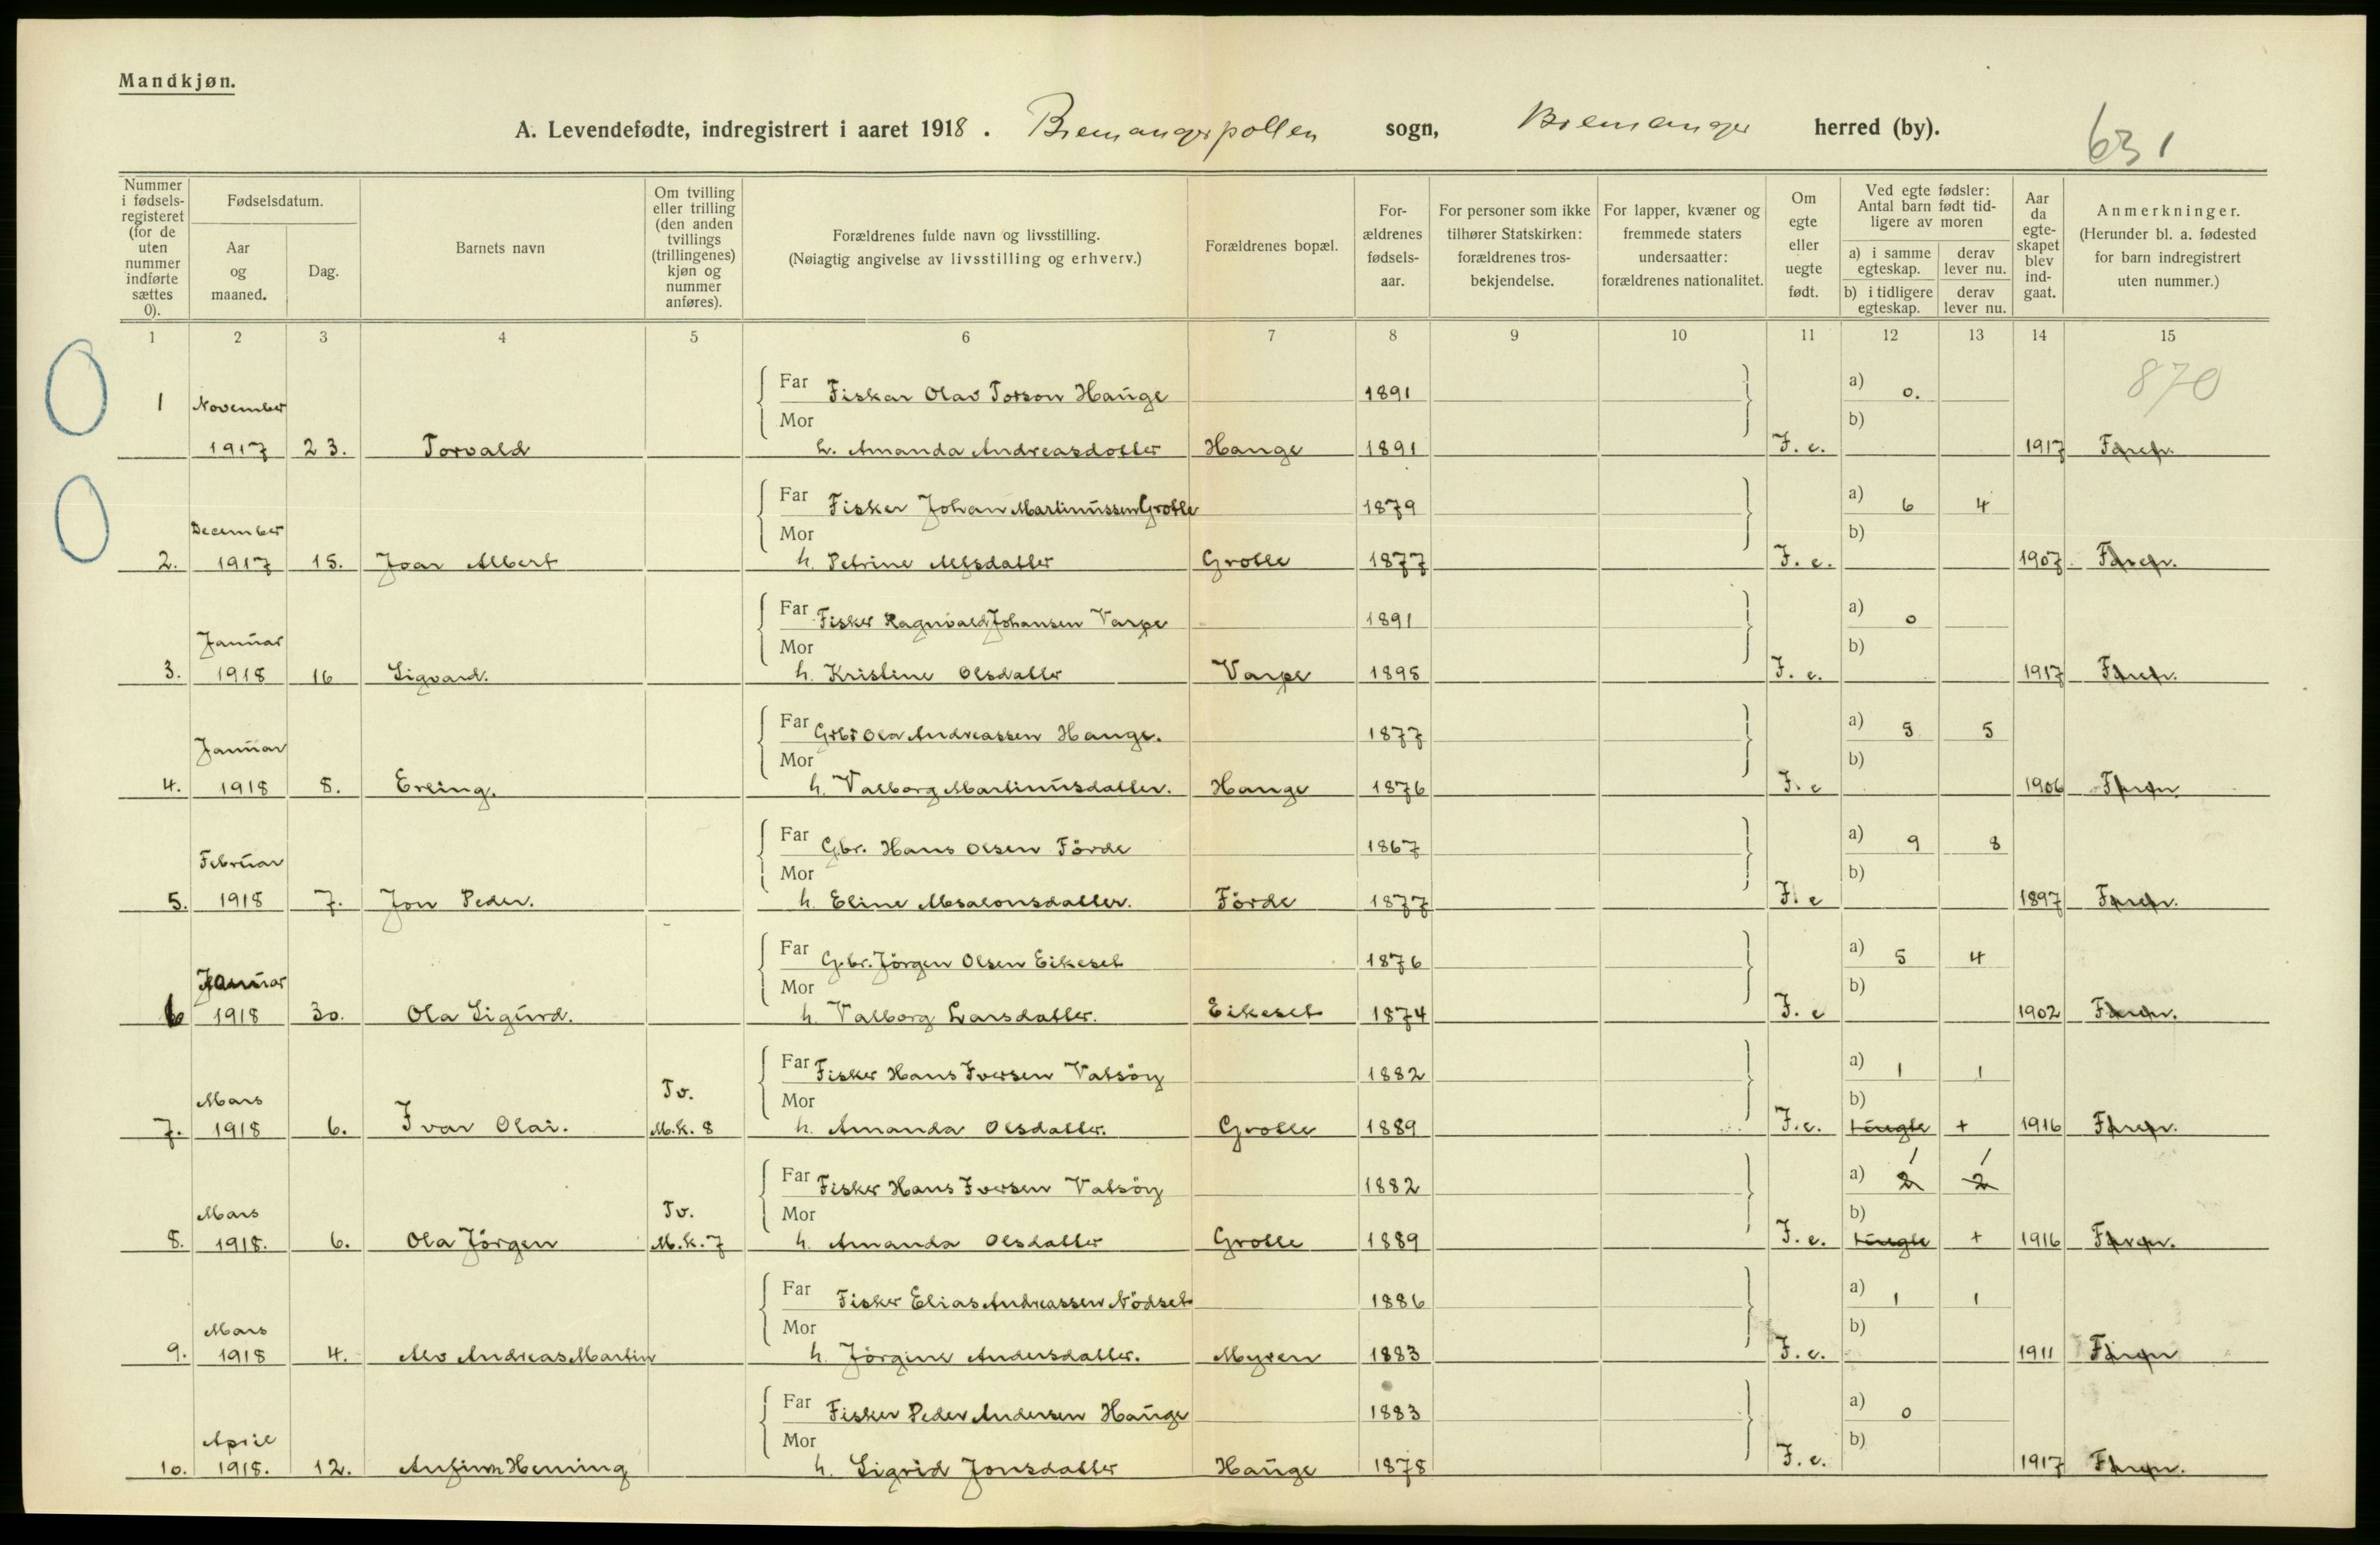 Mandkjøn.
A. Levendefødte, indregistrert i aaret 1918. Bremangerpollen sogn, Bremanger herred (by).
631
Nummer i fødsels-registeret (for de uten nummer indførte sættes 0).
Fødselsdatum.
Aar og maaned.
Dag.
Barnets navn
Om tvilling eller trilling (den anden tvillings (trillingenes) kjøn og nummer anføres).
Forældrenes fulde navn og livsstilling. (Nøiagtig angivelse av livsstilling og erhverv.)
Forældrenes bopæl.
For-ældrenes fødsels-aar.
For personer som ikke tilhører Statskirken: forældrenes tros-bekjendelse.
For lapper, kvæner og fremmede staters undersaatter: forældrenes nationalitet.
Om egte eller uegte født.
Ved egte fødsler: Antal barn født tid-ligere av moren
a) i samme egteskap.
derav lever nu.
b) i tidligere egteskap.
derav lever nu.
Aar da egte-skapet blev ind-gaat.
Anmerkninger. (Herunder bl. a. fødested for barn indregistrert uten nummer.)
1 2 3 4 5 6 7 8 9 10 11 12 13 14 15
870
Far Fiskar Olav Torson Hauge 1891 a) 0.
1 November
Mor b)
1917 23. Torvald h. Amanda Andreasdotter Hauge 1891 F. e. 1917
Far Fisker Johan Martinussen Grotle 1879 a) 6 4
December
Mor b)
2. 1917 15. Ivar Albert h. Petrine Alfsdatter Grotle 1877 F. e. 1907
Far Fisker Ragnvald Johansen Varpe 1891 a) 0
Januar
Mor b)
3. 1918 16 Sigvard. h. Kristine Olsdatter Varpe 1895 F. e. 1917
Far Gbr Ola Andreassen Hauge. 1877 a) 5 5
Januar
Mor b)
4. 1918 8. Erling. h. Valborg Martinusdatter. Hauge 1876 F. e 1906
Far Gbr. Hans Olsen Förde 1867 a) 9 8
Februar
Mor b)
5. 1918 7. Jon Peder. h. Eline Absalonsdatter. Förde 1877 F. e 1897
Far Gbr. Jörgen Olsen Eikeset 1876 a) 5 4
Januar
Mor b)
6 1918 30. Ola Sigurd. h. Valborg Larsdatter. Eikeset 1874 F. e 1902
Far Fisker Hans Iversen Vatsöy 1882 a) 1 1
Mars Tv.
Mor b)
7. 1918 6. Ivar Olai. M.k. 8 h. Amanda Olsdatter. Grotle 1889 F. e. + 1916
Far Fisker Hans Iversen Vatsöy 1882 a) 2 1 2 1
Mars Tv.
Mor b)
8. 1918. 6. Ola Jörgen M.k. 7 h. Amanda Olsdatter Grotle 1889 F. e. + 1916
Far Fisker Elias Andreassen Nödset 1886 a) 1 1
Mars
Mor b)
9. 1918 4. Alv Andreas Martin h. Jörgine Andersdatter. Myren 1883 F. e. 1911
Far Fisker Peder Andersen Hauge 1883 a) 0
April
Mor b)
10. 1918. 12. Anfinn Henning h. Sigrid Jonsdatter Hauge 1878 F. e. 1917